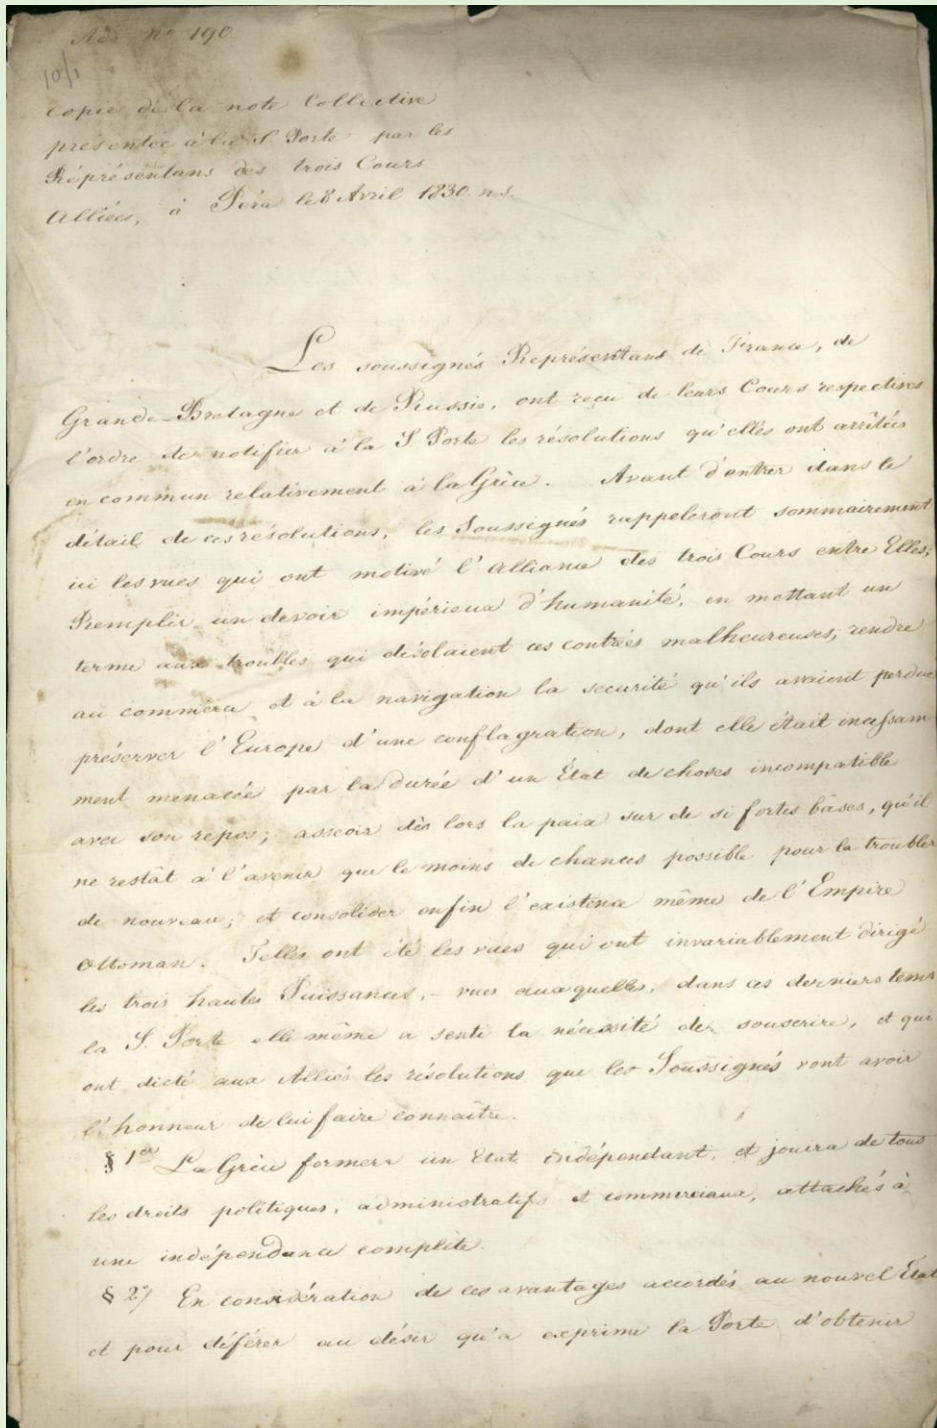 Add. nº 190
10/1
Copie de la note Collective
présentée à la S. Porte par les
Réprésentans des trois Cours
Alliées, à Péra le 8 Avril 1830. n.s.
Les soussignés Représentans de France, de
Grande-Bretagne et de Russie, ont reçu de leurs Cours respectives
l'ordre de notifier à la S. Porte les résolutions qu'elles ont arrêtées
en commun relativement à la Grèce. Avant d'entrer dans le
détail de ces résolutions, les Soussignés rappeleront sommairement
ici les vues qui ont motivé l'Alliance des trois Cours entre Elles;
Remplir un devoir impérieux d'humanité, en mettant un
terme aux troubles qui désolaient ces contrées malheureuses, rendre
au commerce et à la navigation la securité qu'ils avaient perdue
préserver l'Europe d'une conflagration, dont elle était incessam
ment menacée par la durée d'un État de choses incompatible
avec son repos; asseoir dès lors la paix sur de si fortes bases, qu'il
ne restât à l'avenir que le moins de chances possible pour la troubler
de nouveau; et consolider enfin l'existence même de l'Empire
Ottoman. Telles ont été les vues qui ont invariablement dirigé
les trois hautes Puissances, - vues auxquelles, dans ces derniers tems
la S. Porte elle même a senti la nécessité de souscrire, et qui
ont dicté aux Alliés les résolutions que les Soussignés vont avoir
l'honneur de lui faire connaître.
§ 1er La Grèce formera un Etat indépendant, et jouira de tous
les droits politiques, administratifs et commerciaux, attachés à
une indépendance complète.
§ 2°/ En considération de ces avantages accordés au nouvel État
et pour déférer au désir qu'a exprimé la Porte d'obtenir